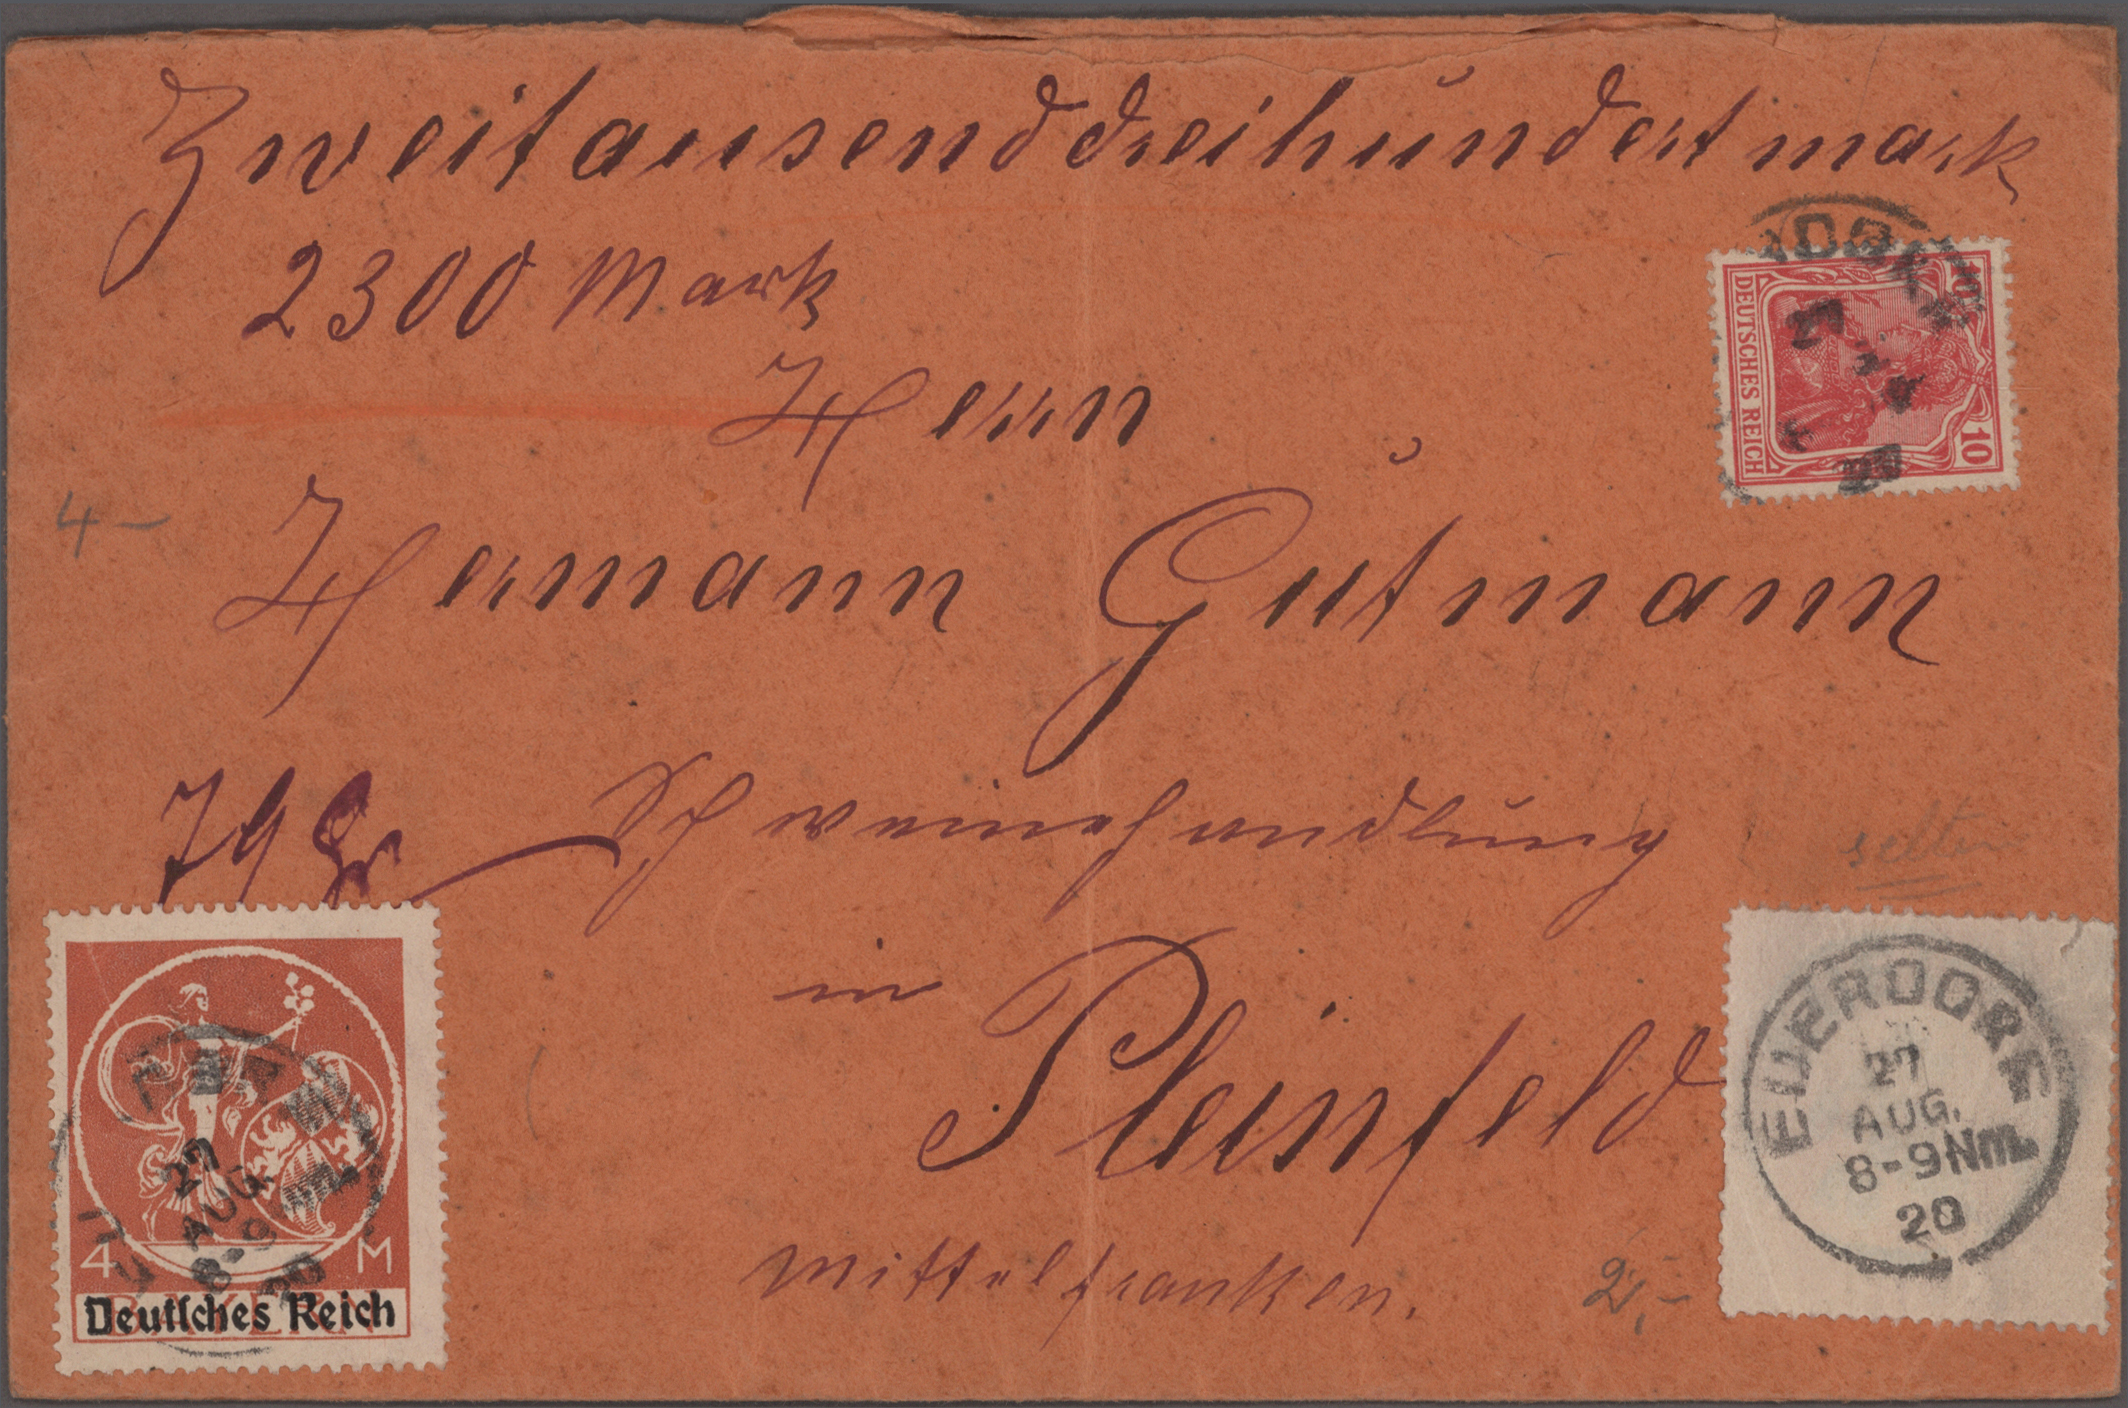 Zweitausenddreihundertmark
2300 Mark
Herrn
Hermann Gutmann
4 –
79 gr
Schweinehandlung
selten
in
Pleinfeld
Mittelfranken.
2,–
10 10
DEUTSCHES REICH
27
20
4 M
BAYERN
Deutsches Reich
27
AUG.
8-9
20
EUERDORF
27
AUG.
8-9Nm.
20